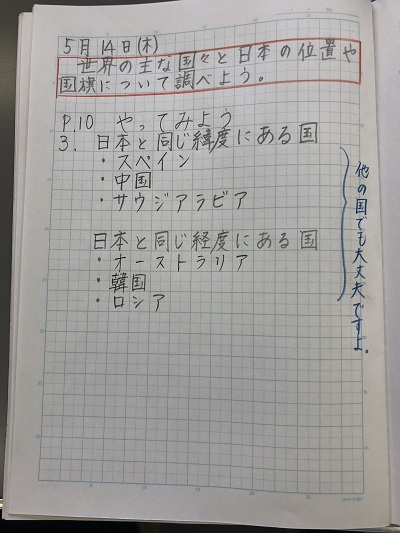 5月14日(木)
世界の主な国々と日本の位置や
国旗について調べよう。
P.10 やってみよう
3. 日本と同じ緯度にある国
・スペイン
・中国
・サウジアラビア
日本と同じ経度にある国
・オーストラリア
・韓国
・ロシア
他の国でも大丈夫ですよ。